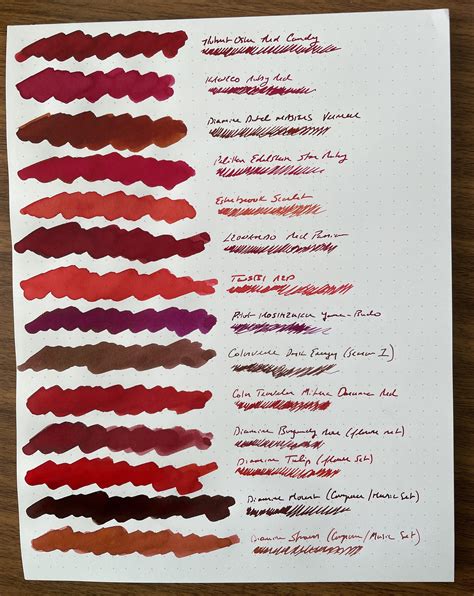 Robert Oster Red Candy
Kaweco Ruby Red
Diamine Dutch Masters Vermeer
Pelikan Edelstein Star Ruby
Esterbrook Scarlet
Leonardo Red Passion
TWSBI Red
Pilot Iroshizuku Yama-Budo
Colorverse Dark Energy (Season I)
Color Traveler Mitera Daruma Red
Diamine Burgundy Rose (flower set)
Diamine Tulip (flower Set)
Diamine Mozart (Composer/Music Set)
Diamine Strauss (Composer/Music Set)